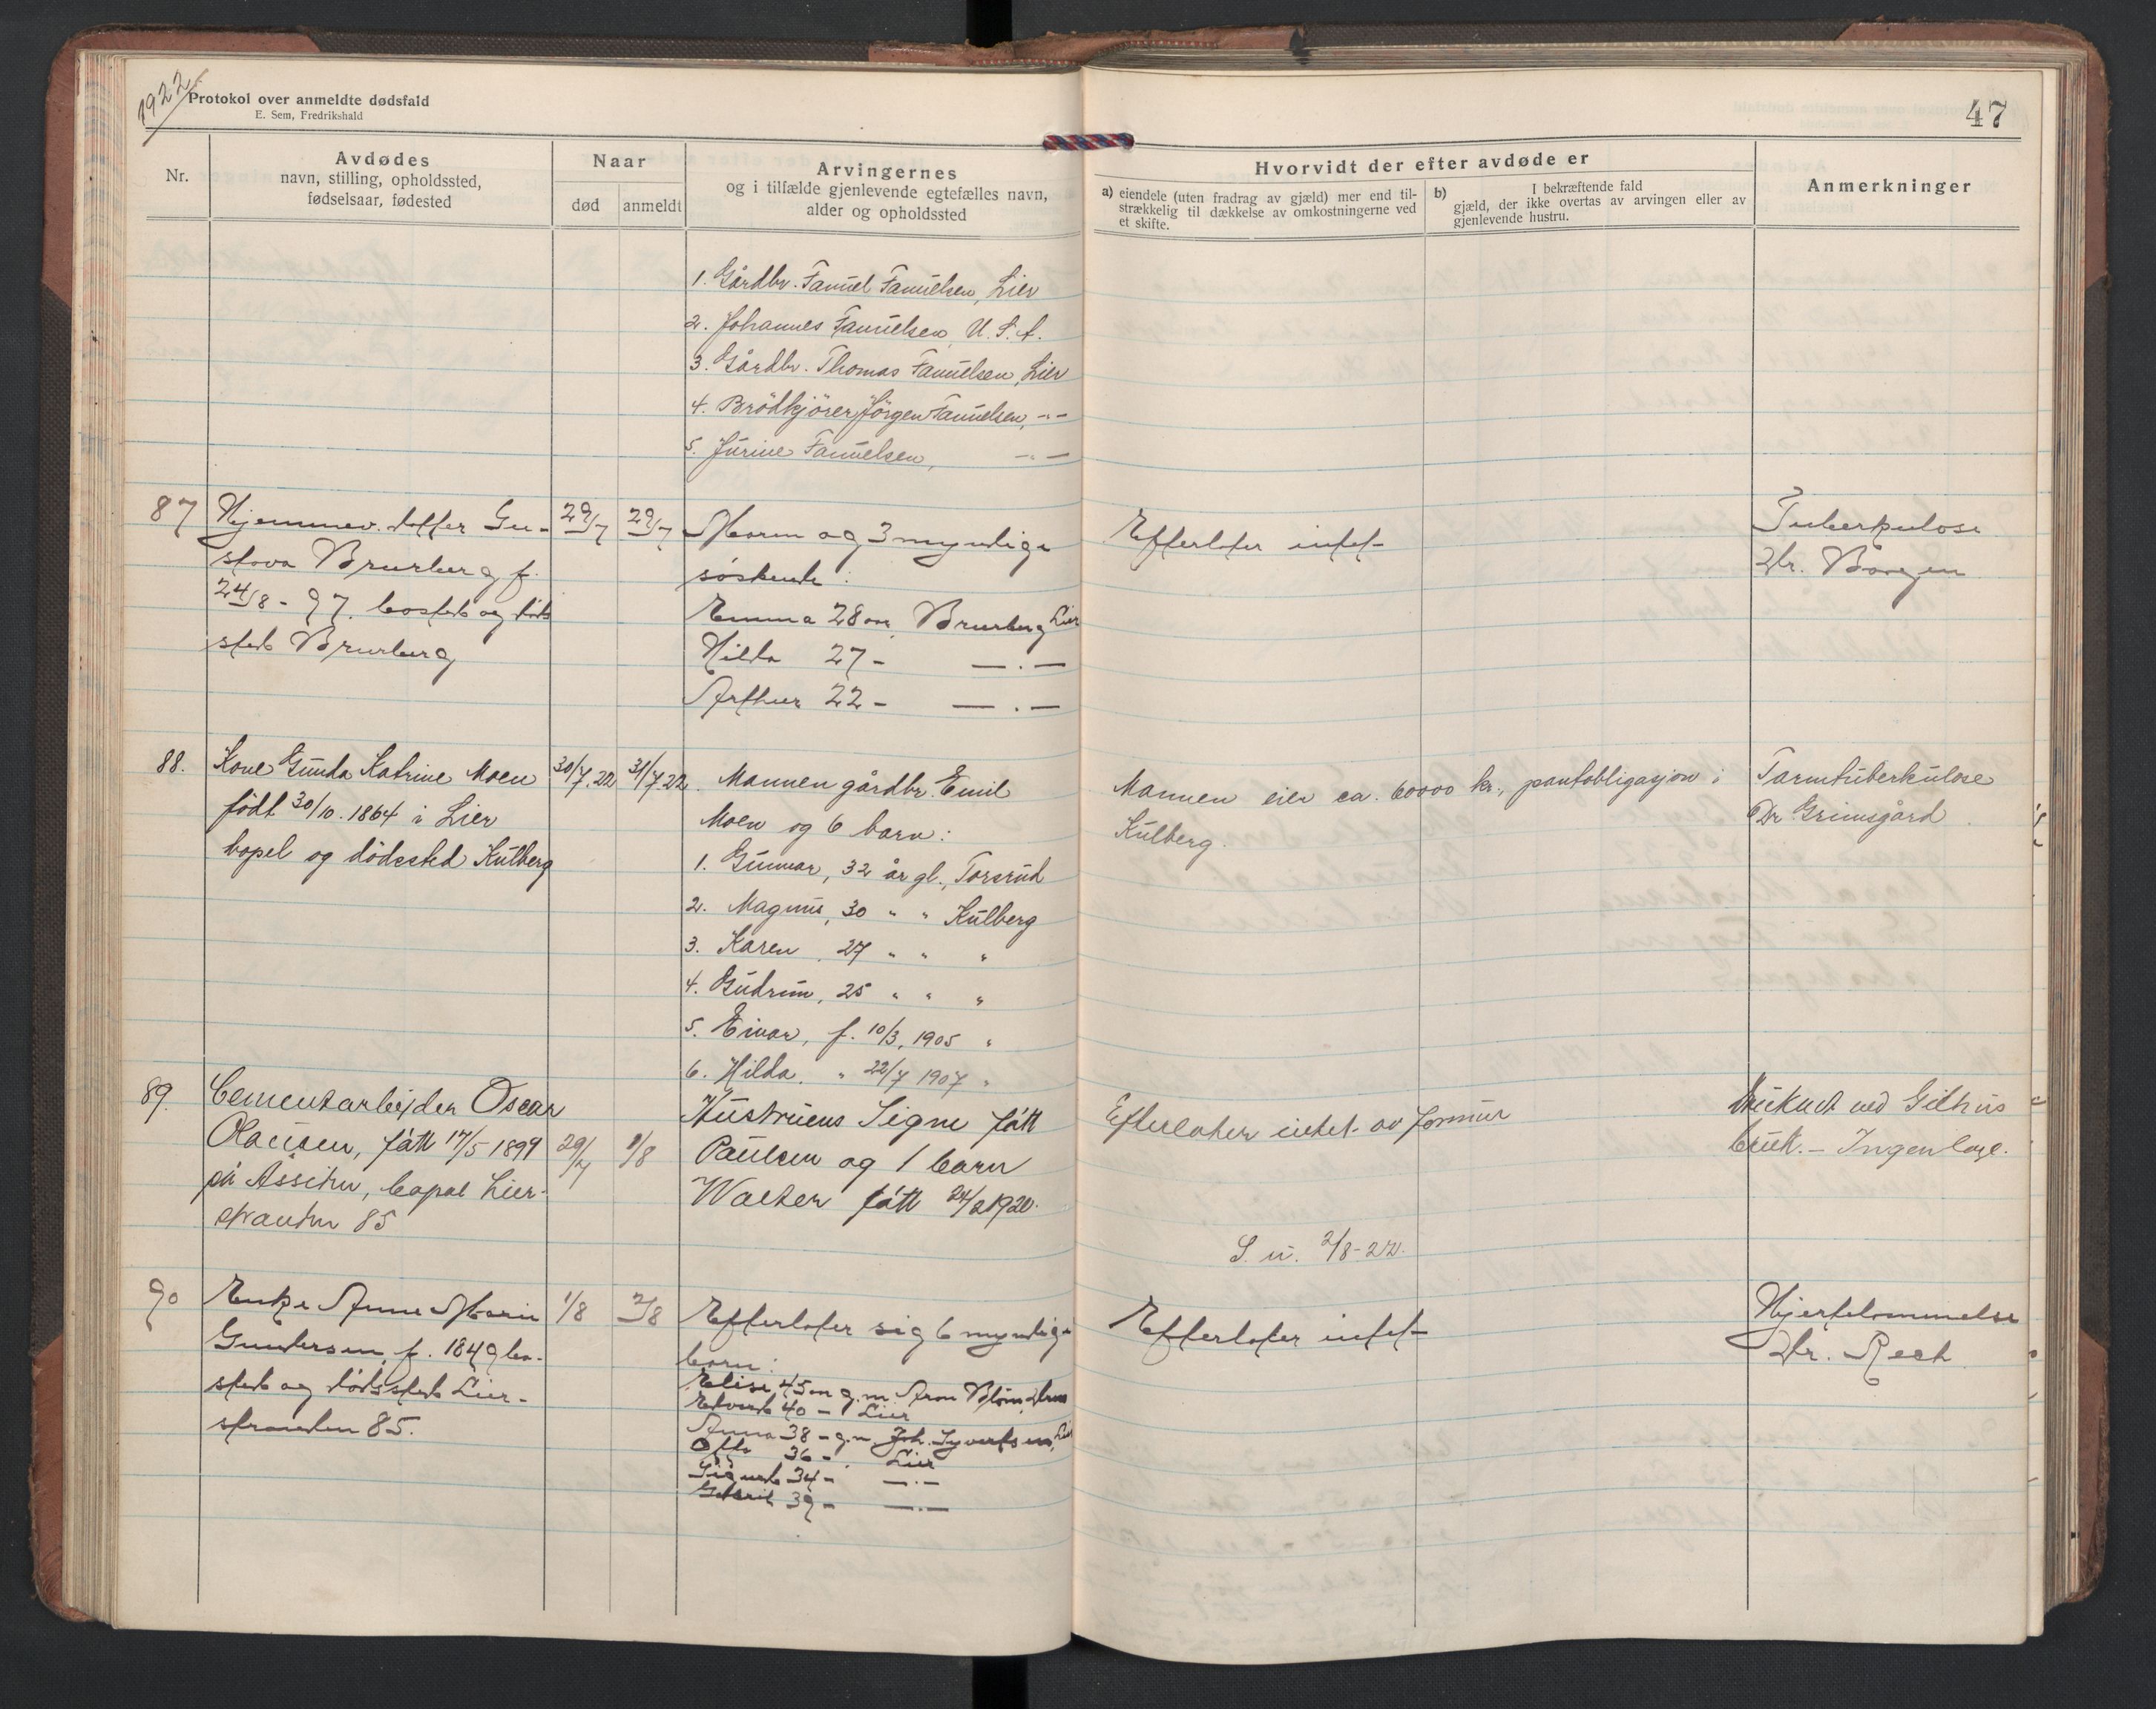 1922
Protokol over anmeldte dødsfald
E. Sem, Fredrikshald
47
Nr.
Avdødes
navn, stilling, opholdssted,
fødselsaar, fødested
Naar
død
anmeldt
Arvingernes
og i tilfælde gjenlevende egtefælles navn,
alder og opholdssted
Hvorvidt der efter avdøde er
a) eiendele (uten fradrag av gjæld) mer end til-
strækkelig til dækkelse av omkostningerne ved
et skifte.
b) I bekræftende fald
gjæld, der ikke overtas av arvingen eller av
gjenlevende hustru.
Anmerkninger
1. Gårdbr. Fanuel Fanuelsen, Lier
2. Johannes Fanuelsen, U.S.A.
3. Gårdbr. Thomas Fanuelsen, Lier
4. Brödkjörer Jörgen Fanuelsen, -"-
5. Jurine Fanuelsen, -"-
87
Hjemmev. datter Gu-
stava Brurberg f.
24/8 - 97. bosted og døds
sted Brurberg
29/7
29/7
Moren og 3 myndige
søskende:
Emma 28 aar, Brurberg Lier
Hilda 27 - -.-
Arthur 22 - -.-
Efterlater intet
Tuberkulose
Dr. Borgen
88.
Kone Gunda Katrine Moen
født 30/10. 1864 i Lier
bopel og dödssted Kulberg
30/7.22
31/7 22.
Mannen gårdbr. Emil
Moen og 6 barn:
1. Gunnar, 32 år gl., Torsrud
2. Magnus, 30 " " Kulberg
3. Karen, 27 " " "
4. Gudrun, 25 " " "
5. Einar, f. 10/3, 1905 "
6. Hilda. " 22/7 1907 "
Mannen eier ca. 60000 kr., pantobligasjon i
Kulberg.
Tarmtuberkulose
Dr Grimsgård.
89.
Cementarbejder Oscar
Olausen, født 17/5 1899
på Assiden, bopæl Lier-
stranden 85
29/7
1/8
Hustruens Signe født
Paulsen og 1 barn
Walter født 24/2 1920.
Efterlater intet av formue
S. u. 2/8-22.
Druknet ved Gilhus
bruk. - Ingen læge.
90
Enke Anne Marie
Gundersen, f. 1849 bo-
sted og dødssted Lier-
stranden 85.
1/8
2/8
Efterlater sig 6 myndige
barn:
Elise 45 aar g.m. Aron Blom,
Edvard 40 - Lier
Anna 38 - g.m. Joh. Syvertsen, Lier
Otto 36 -, Lier
Sigurd 34 - -.-
39 - -.-
Efterlater intet
Hjertelammelse
Dr. Rech